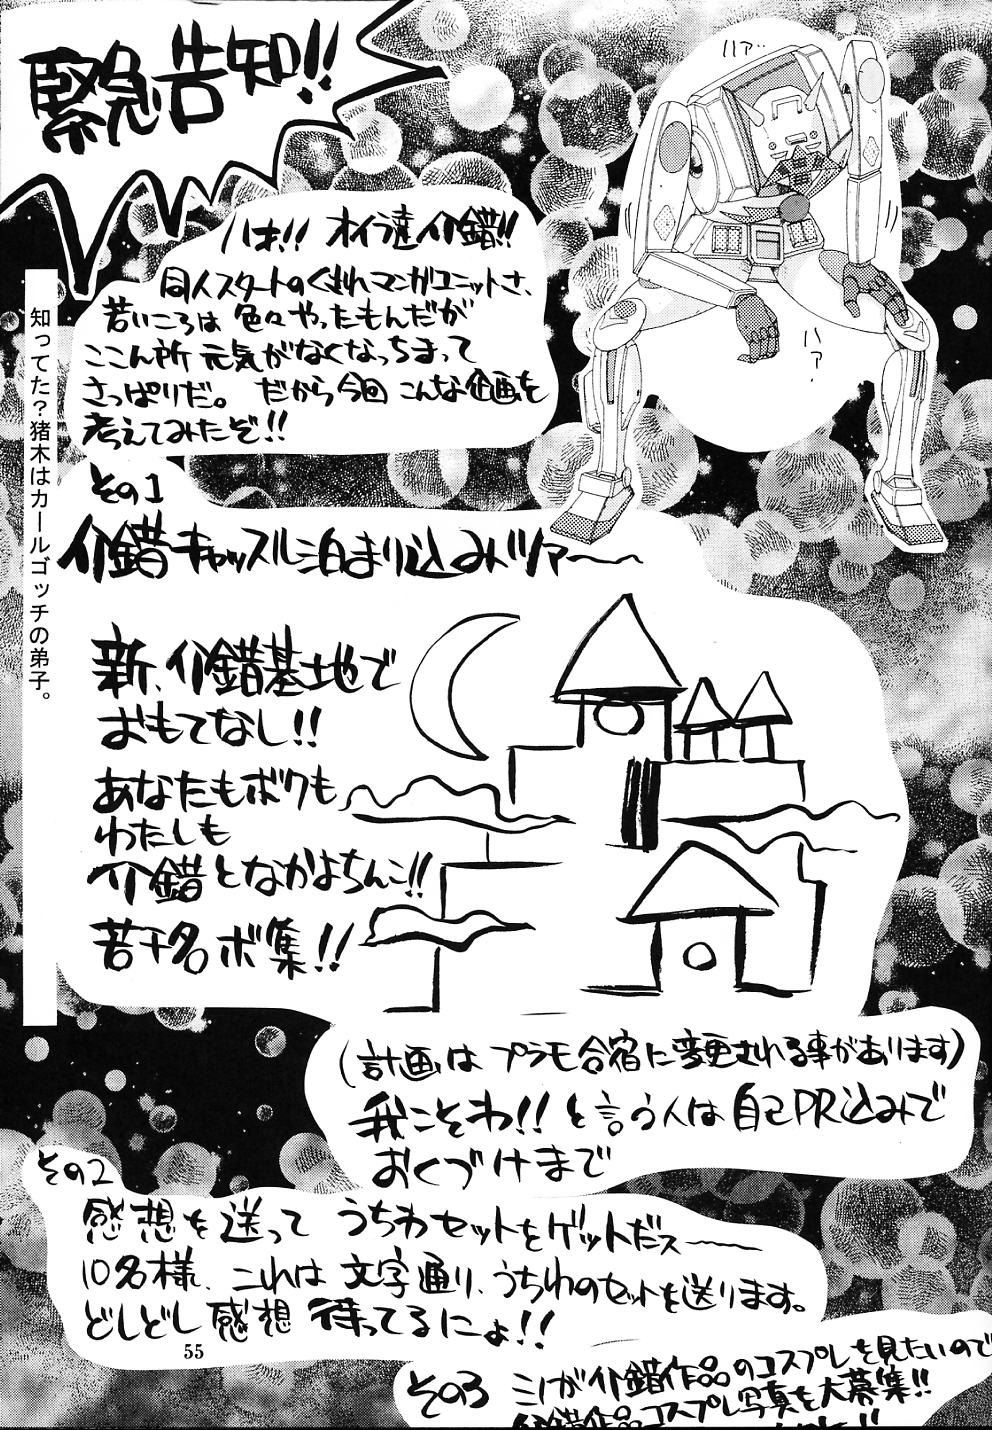 緊急告知!!
ハァ…
ハァ…
ハオ!! オイラ達介錯!!
同人スタートのくされマンガユニットさ、
若いころは色々やったもんだが
ここん所元気がなくなっちまって
さっぱりだ。だから今回こんな企画を
考えてみたぞ!!
知ってた?猪木はカールゴッチの弟子。
その1
介錯キャッスル泊まり込みツアー〜
新、介錯基地で
おもてなし!!
あなたもボクも
わたしも
介錯となかよちんこ!!
若干名ボ集!!
(計画はプラモ合宿に変更される事があります)
我こそわ!!と言う人は自己PR込みで
おくづけまで
その2
感想を送ってうちわセットをゲットだス〜
10名様、これは文字通り、うちわのセットを送ります。
どしどし感想待ってるにょ!!
55
その3
介錯作品のコスプレを見たいので
介錯作品コスプレ写真を大募集!!